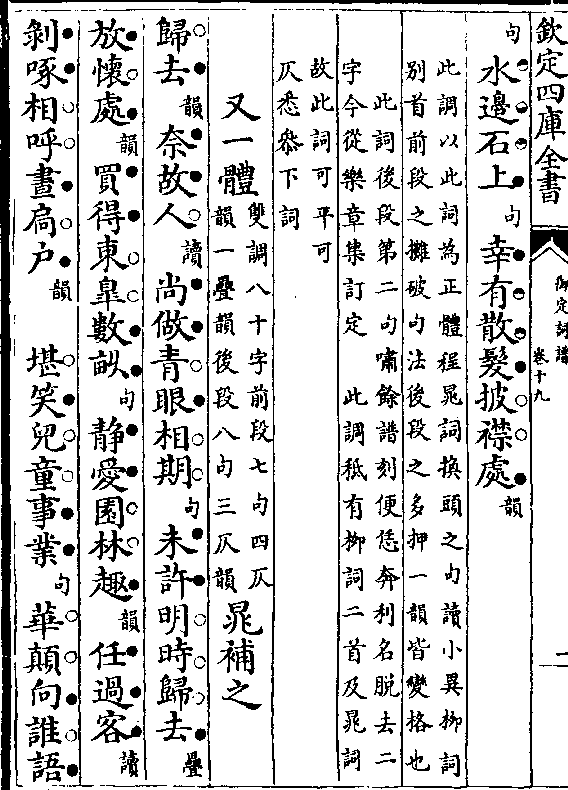 欽定四庫全書
御定詞譜
卷十九
一
句水邊石上句幸有散髮披襟處韻
此調以此詞為正體程晁詞換頭之句讀小異柳詞
別首前段之攤破句法後段之多押一韻皆變格也
此詞後段第二句嘯餘譜刻便恁奔利名脫去二
字今從樂章集訂定 此調秪有柳詞二首及晁詞
故此詞可平可
仄悉叅下詞
又一體雙調八十字前段七句四仄
韻一疊韻後段八句三仄韻晁補之
歸去韻奈故人讀尚做青眼相期句未許明時歸去疊
放懷處韻買得東皐數畝句靜愛園林趣韻任過客讀
剝啄相呼晝扃户韻 堪笑兒童事業句華顛向誰語